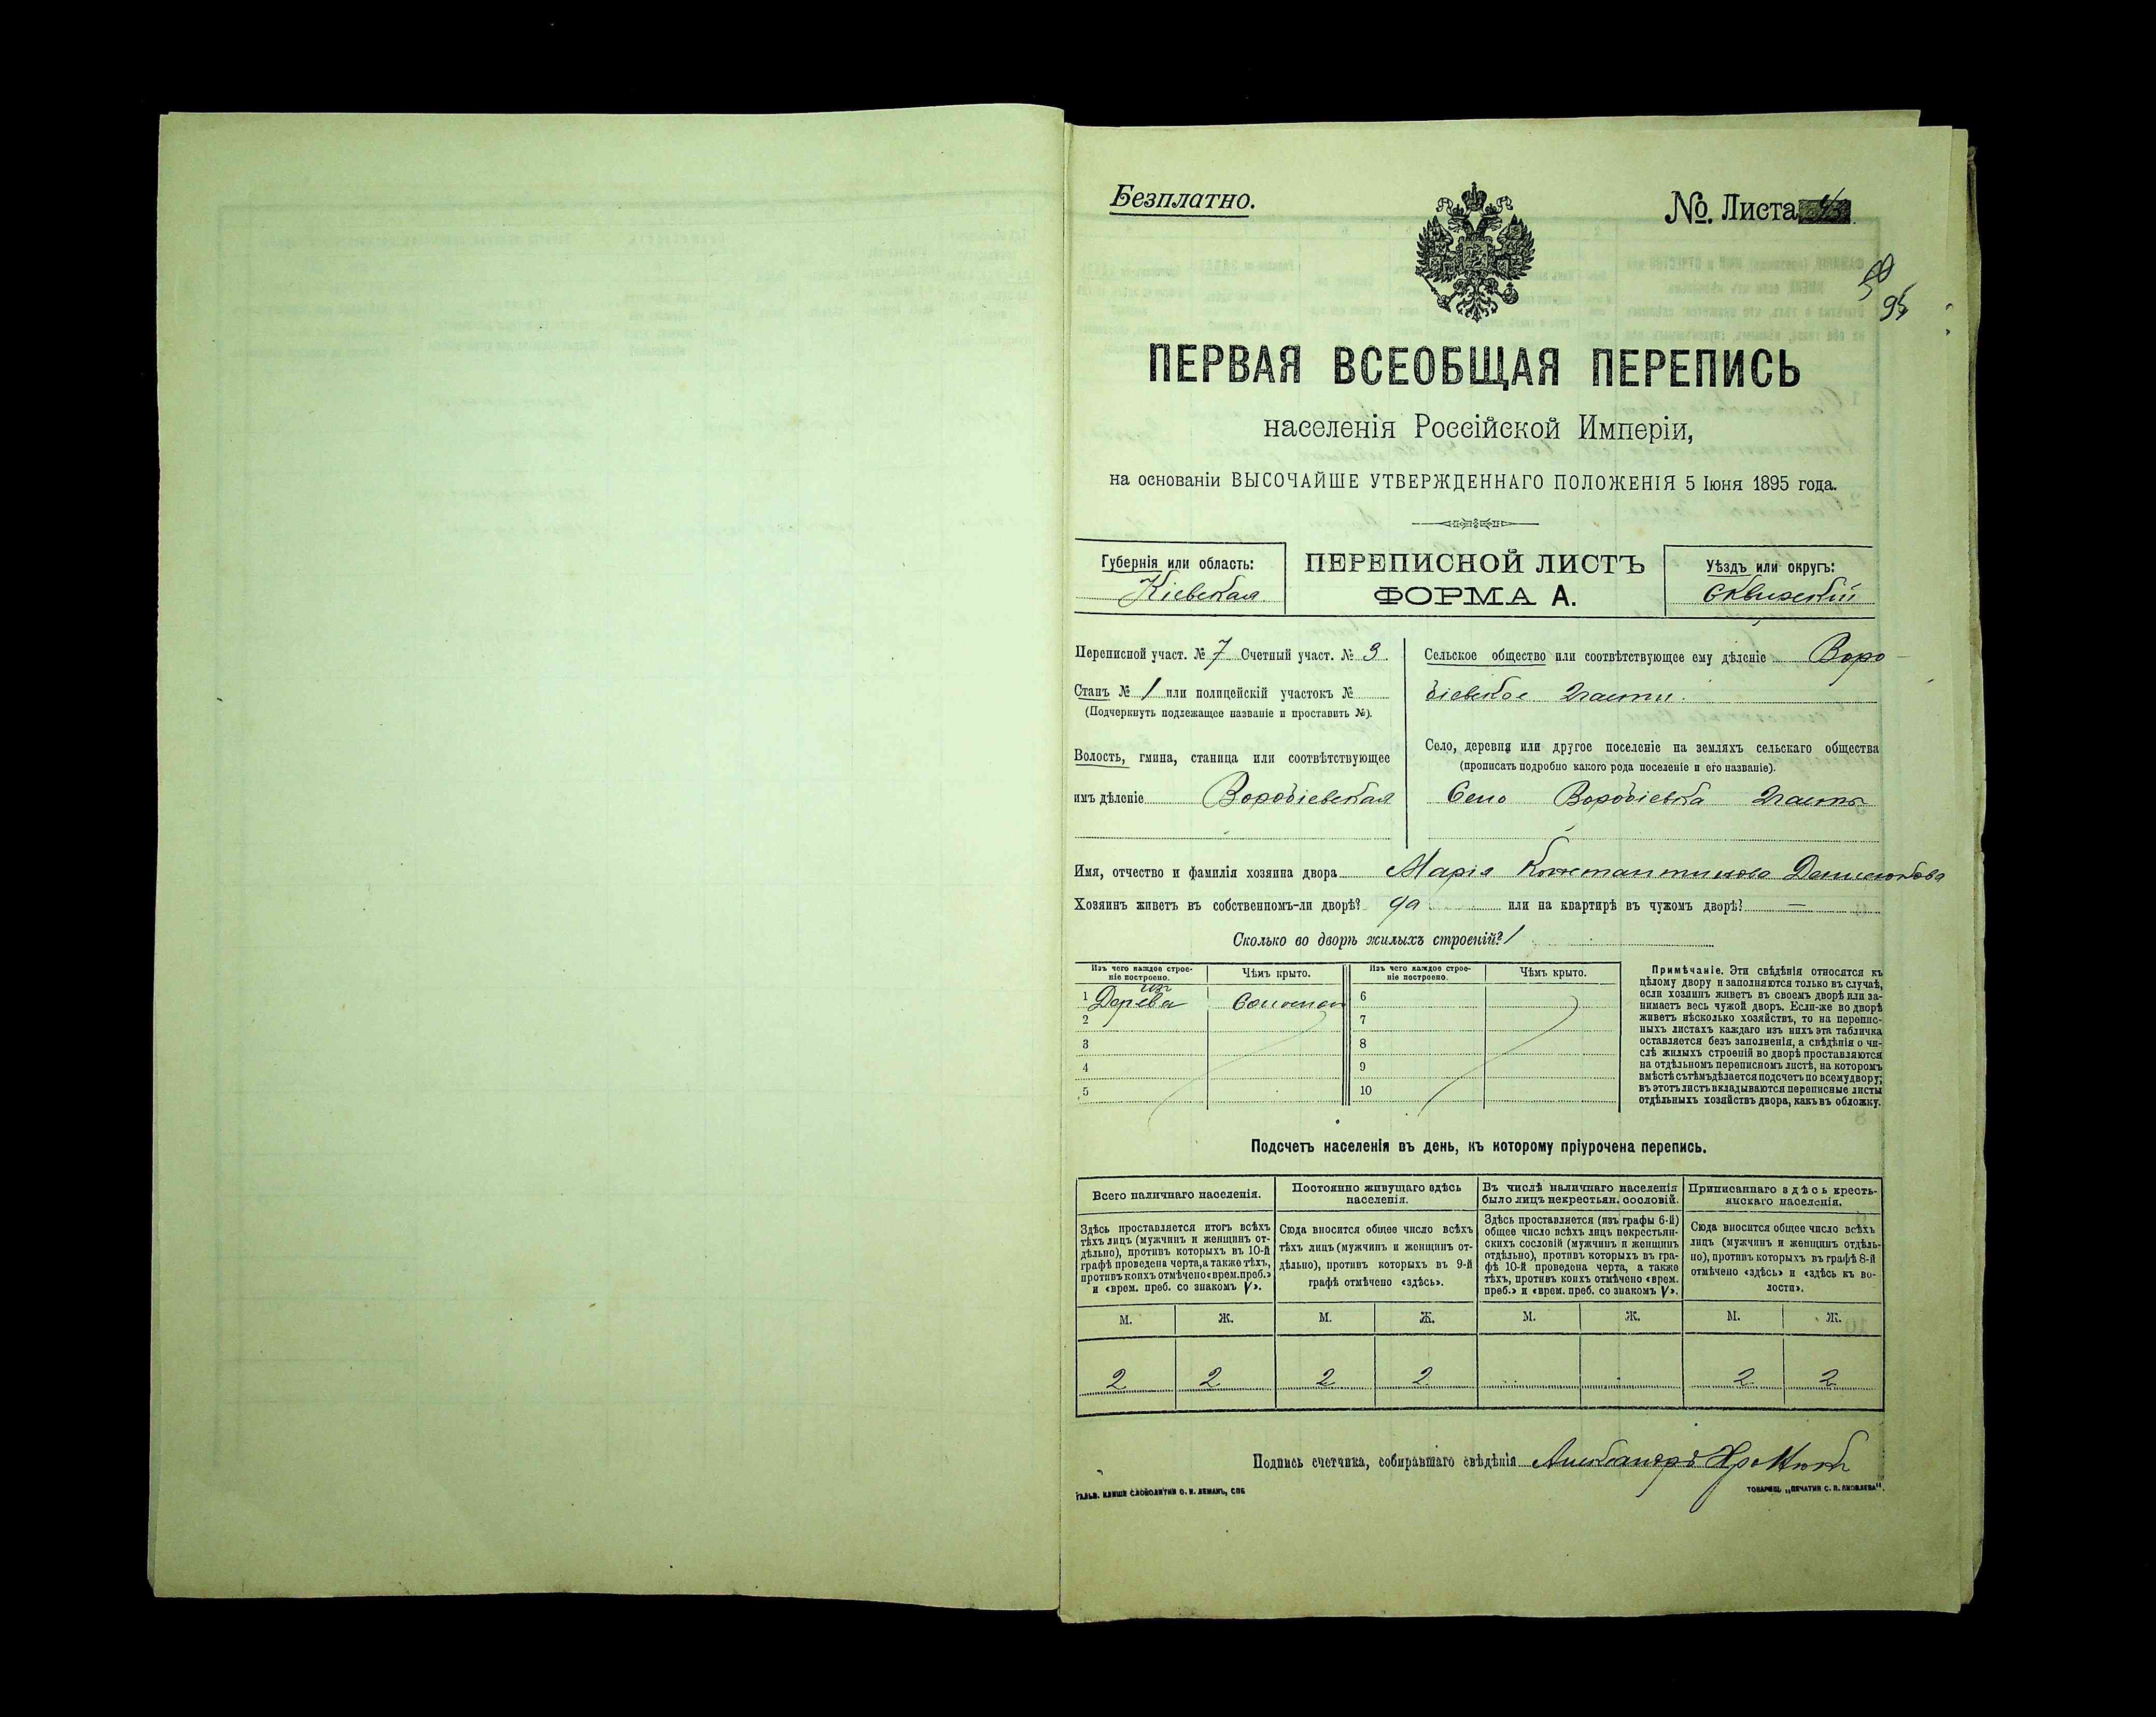 Безплатно.
№. Листа
95
ПЕРВАЯ ВСЕОБЩАЯ ПЕРЕПИСЬ
населенія Россійской Имперіи,
на основаніи ВЫСОЧАЙШЕ УТВЕРЖДЕННАГО ПОЛОЖЕНІЯ 5 Іюня 1895 года.
Губернія или область:
Кіевская
ПЕРЕПИСНОЙ ЛИСТЪ
ФОРМА А.
Уѣздъ или округъ:
Сквирскій
Переписной участ. № 7 Счетный участ. № 3.
Станъ № 1 или полицейскій участокъ №
(Подчеркнуть подлежащее названіе и проставить №).
Волость, гмина, станица или соотвѣтствующее
имъ дѣленіе Воробіевская
Сельское общество или соотвѣтствующее ему дѣленіе Воро
біевское 2 части.
Село, деревня или другое поселеніе на земляхъ сельскаго общества
(прописать подробно какого рода поселеніе и его названіе).
Село Воробіевка 2 часть
Имя, отчество и фамилія хозяина двора Марія Константинова
Хозяинъ живетъ въ собственномъ-ли дворѣ? да или на квартирѣ въ чужомъ дворѣ? —
Сколько во дворѣ жилыхъ строеній? 1
Изъ чего каждое строе-
ніе построено.
Чѣмъ крыто.
Изъ чего каждое строе-
ніе построено.
Чѣмъ крыто.
1 изъ Дерева Соломой
2
3
4
5
6
7
8
9
10
Примѣчаніе. Эти свѣдѣнія относятся къ
цѣлому двору и заполняются только въ случаѣ,
если хозяинъ живетъ въ своемъ дворѣ или за-
нимаетъ весь чужой дворъ. Если-же во дворѣ
живетъ нѣсколько хозяйствъ, то на перепис-
ныхъ листахъ каждаго изъ нихъ эта табличка
оставляется безъ заполненія, а свѣдѣнія о чи-
слѣ жилыхъ строеній во дворѣ проставляются
на отдѣльномъ переписномъ листѣ, на которомъ
вмѣстѣ съ тѣмъ дѣлается подсчетъ по всему двору;
въ этотъ листъ вкладываются переписные листы
отдѣльныхъ хозяйствъ двора, какъ въ обложку.
Подсчетъ населенія въ день, къ которому пріурочена перепись.
Всего наличнаго населенія.
Постоянно живущаго здѣсь
населенія.
Въ числѣ наличнаго населенія
было лицъ некрестьян. сословій.
Приписаннаго здѣсь кресть-
янскаго населенія.
Здѣсь проставляется итогъ всѣхъ
тѣхъ лицъ (мужчинъ и женщинъ от-
дѣльно), противъ которыхъ въ 10-й
графѣ проведена черта, а также тѣхъ,
противъ коихъ отмѣчено «врем. преб.»
и «врем. преб. со знакомъ V».
Сюда вносится общее число всѣхъ
тѣхъ лицъ (мужчинъ и женщинъ от-
дѣльно), противъ которыхъ въ 9-й
графѣ отмѣчено «здѣсь».
Здѣсь проставляется (изъ графы 6-й)
общее число всѣхъ лицъ некрестьян-
скихъ сословій (мужчинъ и женщинъ
отдѣльно), противъ которыхъ въ гра-
фѣ 10-й проведена черта, а также
тѣхъ, противъ коихъ отмѣчено «врем.
преб.» и «врем. преб. со знакомъ V».
Сюда вносится общее число всѣхъ
лицъ (мужчинъ и женщинъ отдѣль-
но), противъ которыхъ въ графѣ 8-й
отмѣчено «здѣсь» и «здѣсь къ во-
лости».
М. Ж. М. Ж. М. Ж. М. Ж.
2 2 2 2 2 2
Подпись счетчика, собиравшаго свѣдѣнія Александръ
ГАЛЬВ. КЛИШЕ СЛОВОЛИТНИ О. И. ЛЕМАНЪ, СПБ
ТОВАРИЩ. „ПЕЧАТНЯ С. П. ЯКОВЛЕВА“.